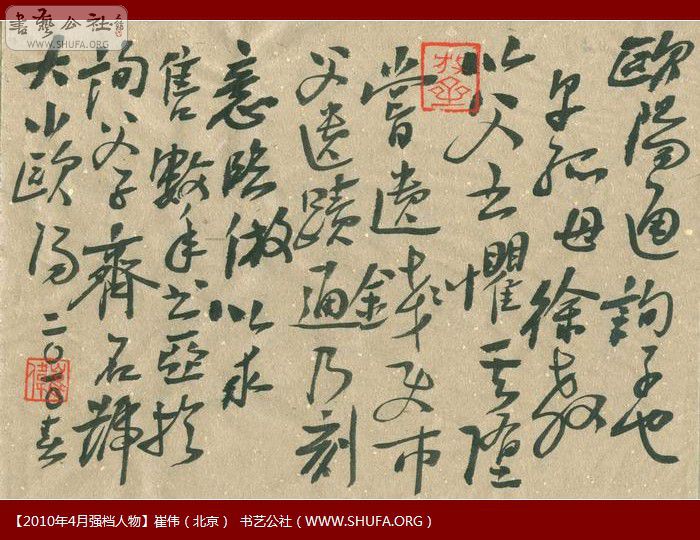 书艺公社
WWW.SHUFA.ORG
歐陽通詢子也
早孤母徐教
以父書懼其墮
嘗遺錢使市
父遺蹟通乃刻
意臨倣以求
售數年書亞於
詢父子齊名號
大小歐陽 二〇一〇春
【2010年4月强档人物】崔伟（北京） 书艺公社（WWW.SHUFA.ORG）